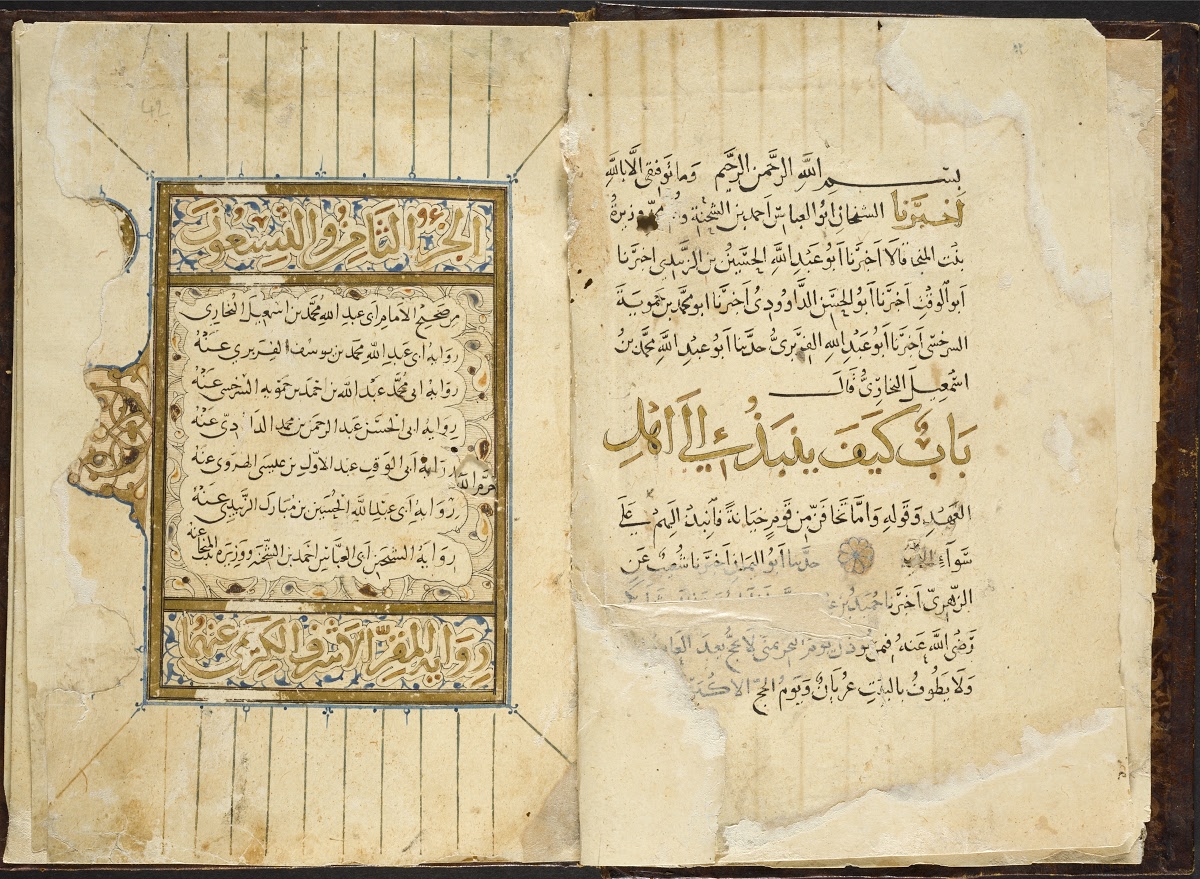 بسم الله الرحمن الرحيم وما توفيقي الا بالله
اخبرنا الشيخان ابو العباس احمد بن الشحنة وزيرة
بنت المنجا قالا اخبرنا ابو عبد الله الحسين بن الزبيدي اخبرنا
ابو الوقت اخبرنا ابو الحسن الداوودي اخبرنا ابو محمد بن حموية
السرخسي اخبرنا ابو عبد الله الفربري حدثنا ابو عبد الله محمد بن
اسمعيل البخاري قال
باب كيف ينبذ إلى اهل
العهد وقوله واما تخافن من قوم خيانة فانبذ اليهم على
سواء حدثنا ابو اليمان اخبرنا شعيب عن
الزهري اخبرنا حميد بن
رضي الله عنه فيمن يوذن يوم النحر بمنى لا يحج بعد العام
ولا يطوف بالبيت عريان ويوم الحج الاكبر
الجزء الثامن والتسعون
من صحيح الامام ابي عبد الله محمد بن اسمعيل البخاري
رواية ابي عبد الله محمد بن يوسف الفربري عنه
رواية ابي محمد عبد الله بن احمد بن حمويه السرخسي عنه
رواية ابي الحسن عبد الرحمن بن محمد الداودي عنه
رواية ابي الوقت عبد الاول بن عيسى الهروي عنه
رحمه الله
رواية ابي عبد الله الحسين بن مبارك الزبيدي عنه
رواية الشيخين ابي العباس احمد بن الشحنة ووزيرة بنت المنجا عنه
رواية المقر الاشرف الكريم عنهما